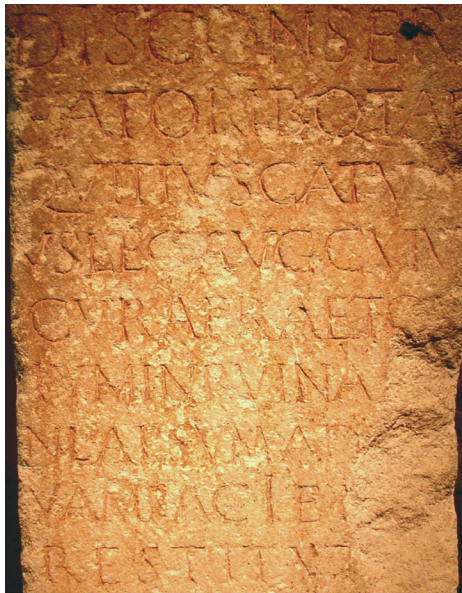 DISCONSER
VATORIBQTAR
QVITIVSCATV
VSLEGAVGCVIV
CVRAPRAETO
IVMINRVINA
NLAPSVMAD
VAMFACIE
RESTITVT